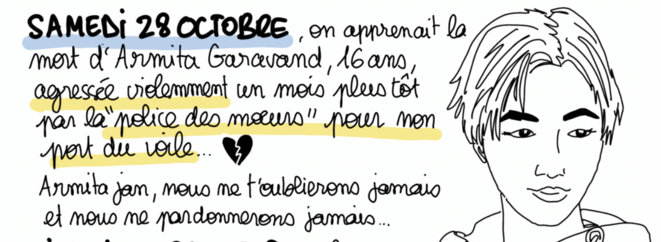 SAMEDI 28 OCTOBRE, on apprenait la
mort d'Armita Garavand, 16 ans,
agressée violemment un mois plus tôt
par la "police des mœurs" pour non
port du voile...
Armita jan, nous ne t'oublierons jamais
et nous ne pardonnerons jamais...